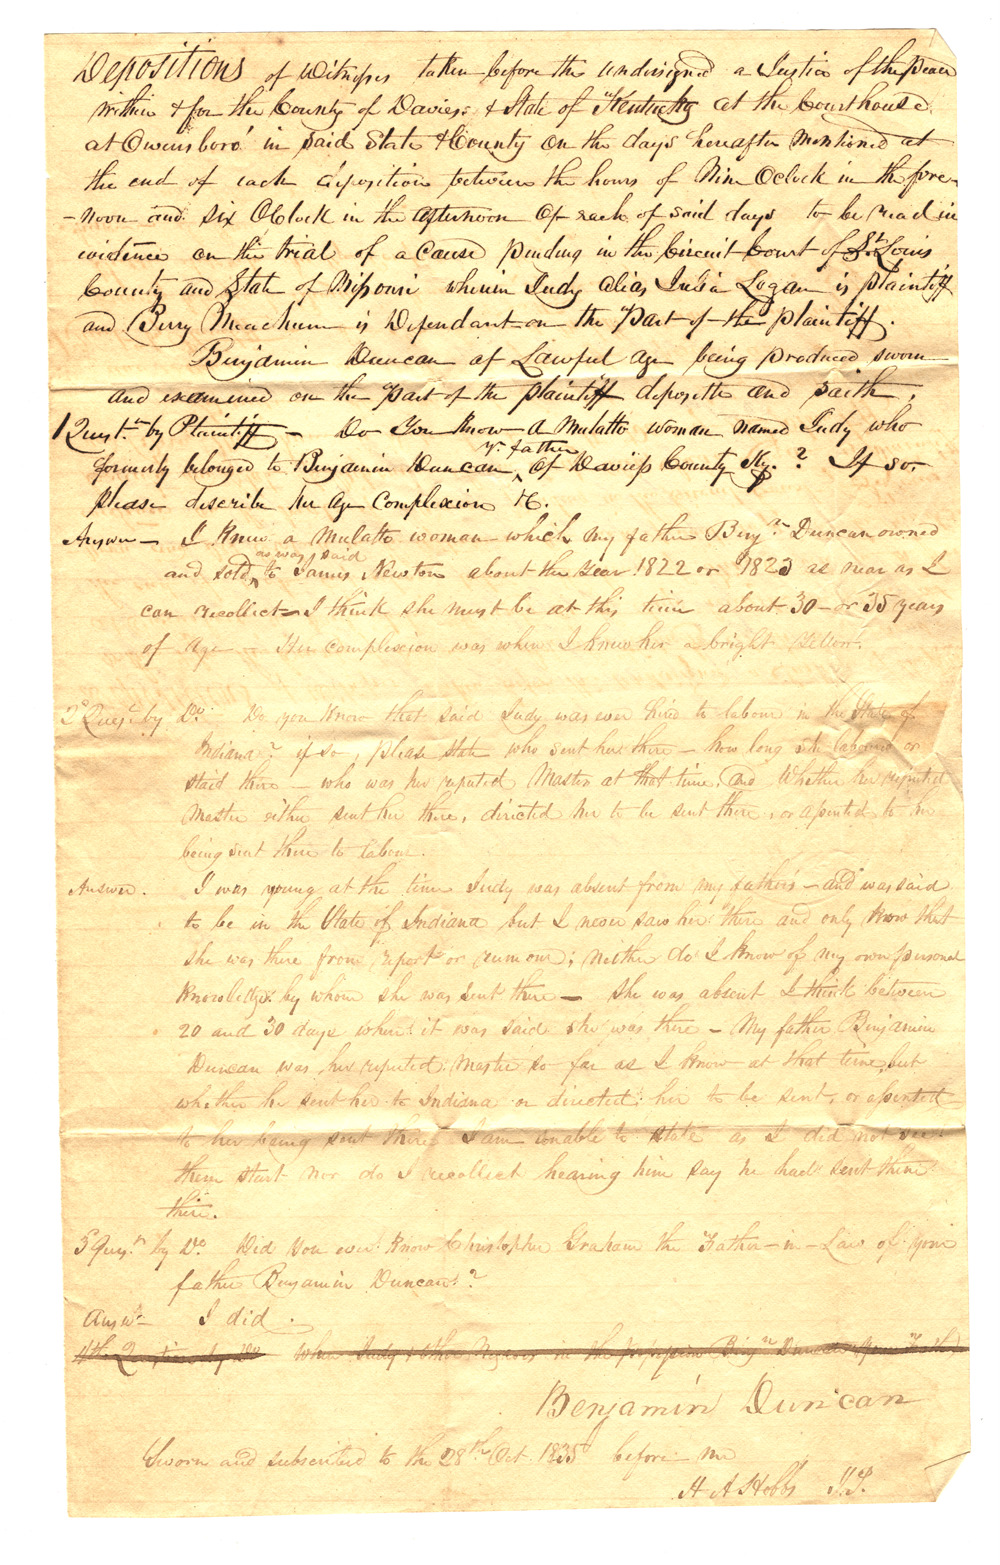 Depositions of Witnesses taken before the undersigned a Justice of the peace
within & for the County of Daviess & State of Kentucky at the Courthouse
at Owensboro' in said State & County on the days hereafter mentioned at
the end of each deposition between the hours of Nine Oclock in the fore-
-noon and six OClock in the afternoon of each of said days to be read in
evidence on the trial of a cause pending in the Circuit Court of St. Louis
County and State of Missouri wherein Judy alias Julia Logan is plaintiff
and Berry Meachum is Defendant on the Part of the plaintiff.
Benjamin Duncan of Lawful age being produced sworn
and examined on the Part of the plaintiff deposeth and saith,
1 Quest.n by Plaintiff - Do You know a Mulatto woman named Judy who
yr. father
formerly belonged to Benjamin Duncan ^ of Daviess County Ky.? If so,
please describe her age complexion &C.
Answer - I knew a mulatto woman which my father Benj.n Duncan owned
as was said
and sold ^ to James Newton about the year 1822 or 1823 as near as I
can recollect - I think she must be at this time about 30 - or 35 years
of age - Her complexion was when I knew her a bright yellow.
2d Ques.n by Do. Do you know that said Judy was ever hired to labour in the State of
Indiana? if so, please state who sent her there - how long she laboured or
staid there - who was her reputed Master at that time, and Whether her reputed
Master either sent her there, directed her to be sent there, or asented to her
being sent there to labour.
Answer. I was young at the time Judy was absent from my father's - and was said
to be in the State of Indiana but I never saw her there and only know that
she was there from report or rumour; neither do I know of my own personal
knowledge by whom she was sent there - She was absent I think between
20 and 30 days when it was said she was there - My father Benjamin
Duncan was her reputed Master so far as I know at that time, but
whether he sent her to Indiana or directed her to be sent, or asented
to her being sent there I am unable to state as I did not see
them start nor do I recollect hearing him say he had sent them
there.
3d Ques.n by Do. Did You ever know Christopher Graham the Father-in-Law of your
father Benjamin Duncan?
Answ.r I did.
4th Question by Do When Judy & other Negroes in the possession Benj.n Duncan your Father
Benjamin Duncan
Sworn and subscribed to the 28th Oct. 1835 before me
H A Hobbs J.P.